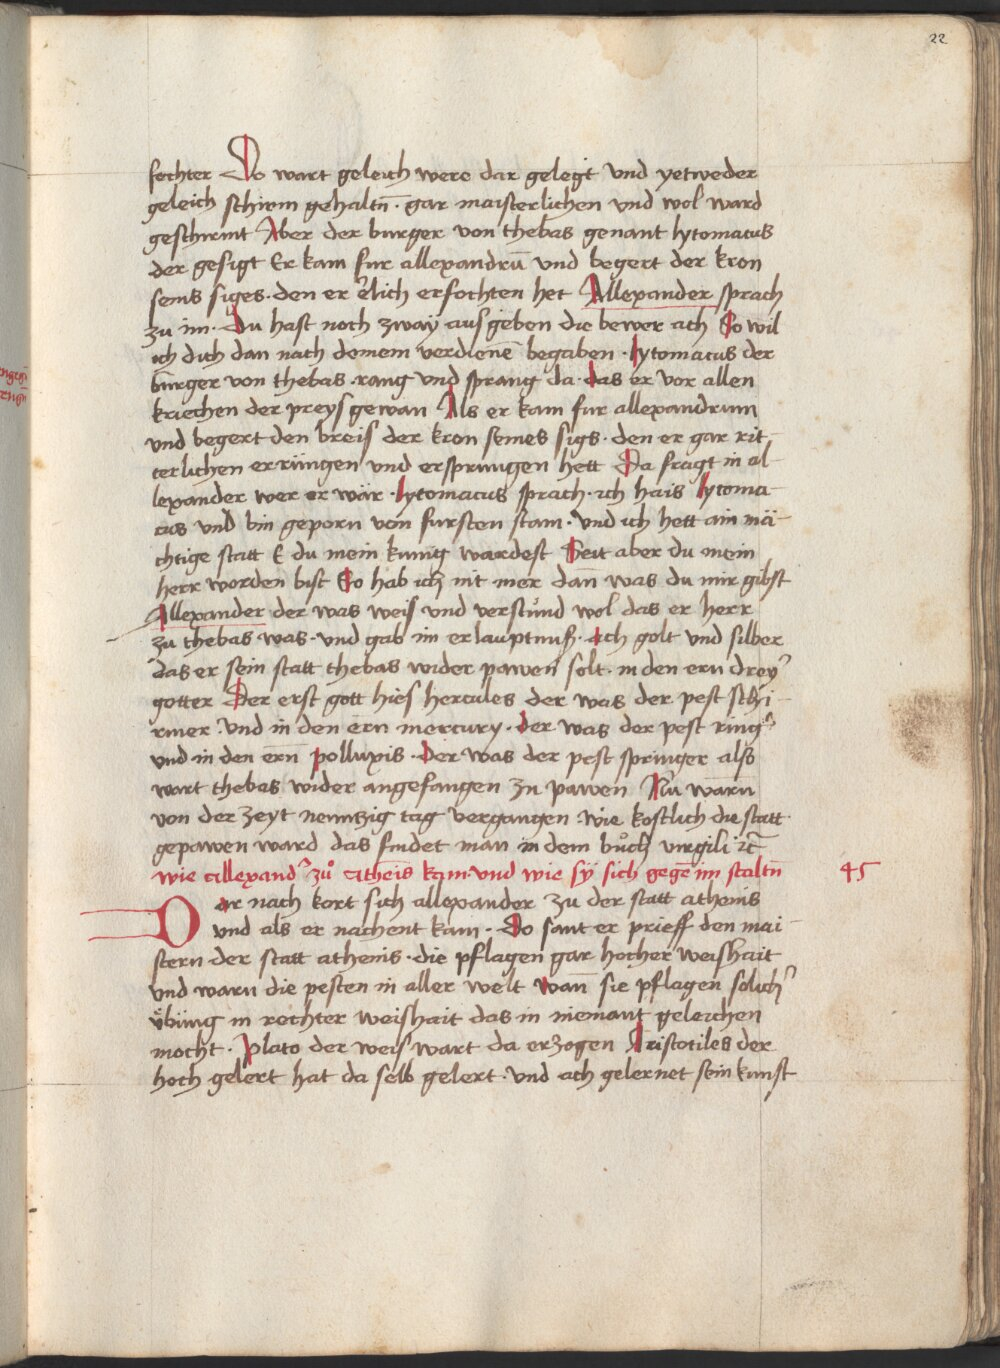 22
fechter Do wart geleich were dar gelegt vnd yetweder
geleich schirm gehaltn̄ · gar maisterlichen vnd wol ward
geschirmt Aber der burger von thebas genant lytomacus
der gesigt Er kam fur allexandrū vnd begert der kron
seins siges · den er erlich erfochten het Allexander sprach
zu im · du hast noch zway aus geben die bewer ach So wil
ich dich dan nach deinem verdienē begaben · lytomacus der
burger von thebas · rang vnd sprang da · das er vor allen
kriechen der preys gewan Als er kam fur allexandrum
vnd begert den breis der kron seines sigs · den er gar rit-
terlichen errüngen vnd ersprungen hett Da fragt in al-
lexander wer er wär · lytomacus sprach · ich hais lytoma-
cus vnd bin geporn von fursten stam · vnd ich hett ain mä-
chtige statt E du mein kunig wardest Seit aber du mein
herr worden bist So hab ich nit mer dan̄ was du mir gibst
Allexander der was weis vnd verstůnd wol das er herr
zu thebas was · vnd gab im erlauptnuß · ach golt vnd silber
das er sein statt thebas wider pawen solt · in den ern drey
gotter Der erst gott hies hercules der was der pest schi-
rmer · vnd in den ern mercury · der was der pest ring
vnd in den ern̄ polluxis · Der was der pest springer also
wart thebas wider angefangen zu pawen Nu warn
von der zeyt neunczig tag vergangen · wie kostlich die statt
gepawen ward das findet man in dem bůch virgili ꝛc̄
wie allexand zů athenis kam · vnd wie sÿ sich gegē im staltn̄ 45
Dar nach kort sich allexander zu der statt athenis
vnd als er nachent kam · Do sant er prieff den mai-
stern der statt athenis · die pflagen gar hocher weishait
vnd warn die pesten in aller welt wan̄ sie pflagen solich
ůbüng in rechter weishait das in niemant geleichen
mocht · Plato der weis wart da erzogen Aristotiles der
hoch gelert hat da selb gelert · vnd ach gelernet sein kunst